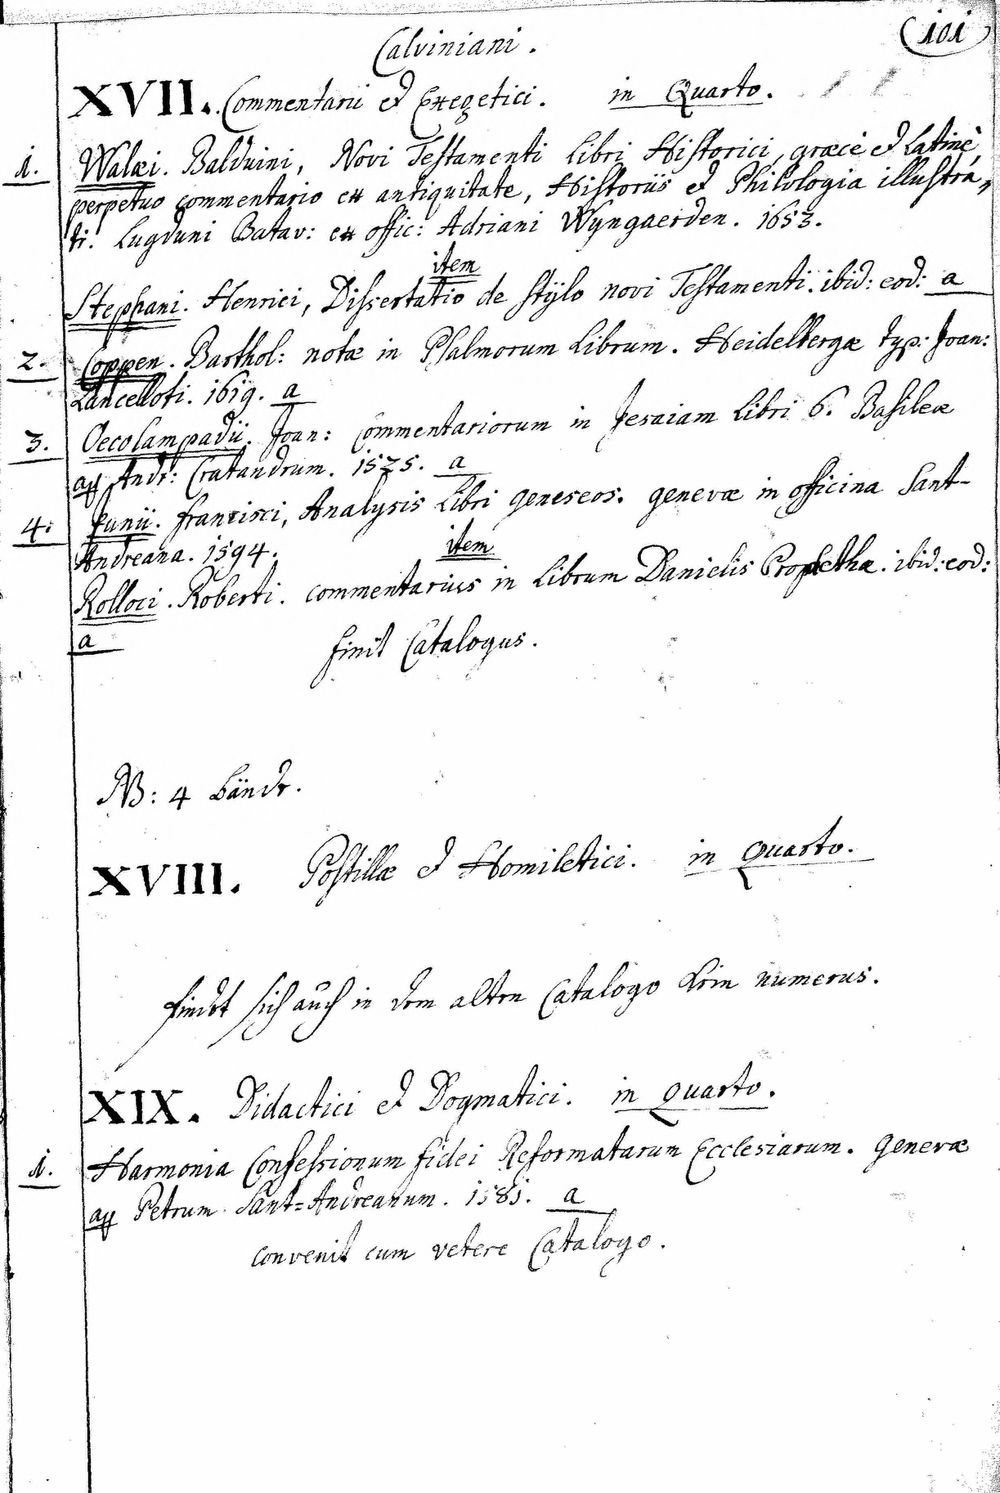 101
Calviniani.
XVII. Commentarii et Exegetici. in Quarto.
1. Walæi. Balduini, Novi Testamenti Libri Historici, græcè et Latinè
perpetuo commentario ex antiquitate, Historiis et Philologia illustra„
ti. Lugduni Batav: ex offic: Adriani Wyngaerden. 1653.
item
Stephani. Henrici, Dissertatio de stÿlo novi Testamenti. ibid: eod: a
2. Coppen. Barthol: notæ in Psalmorum Librum. Heidelbergæ typ: Joan:
Lancelloti. 1619. a
3. Oecolampadii. Joan: Commentariorum in Jesaiam Libri 6. Basileæ
ap Andr: Cratandrum. 1525. a
4: Junii. Francisci, Analysis Libri Geneseos. Genevæ in officina Sant-
Andreana. 1594.
item
Rolloci. Roberti. Commentarius in Librum Danielis Prophethæ. ibid: eod:
a
finit Catalogus.
NB: 4 bände.
XVIII. Postillæ et Homiletici. in Quarto.
findet sich auch in dem alten Catalogo kein numerus.
XIX. Didactici et Dogmatici. in Quarto.
1. Harmonia Confessionum fidei Reformatarum Ecclesiarum. Genevæ
ap Petrum Sant=Andreanum. 1581. a
convenit cum vetere Catalogo.